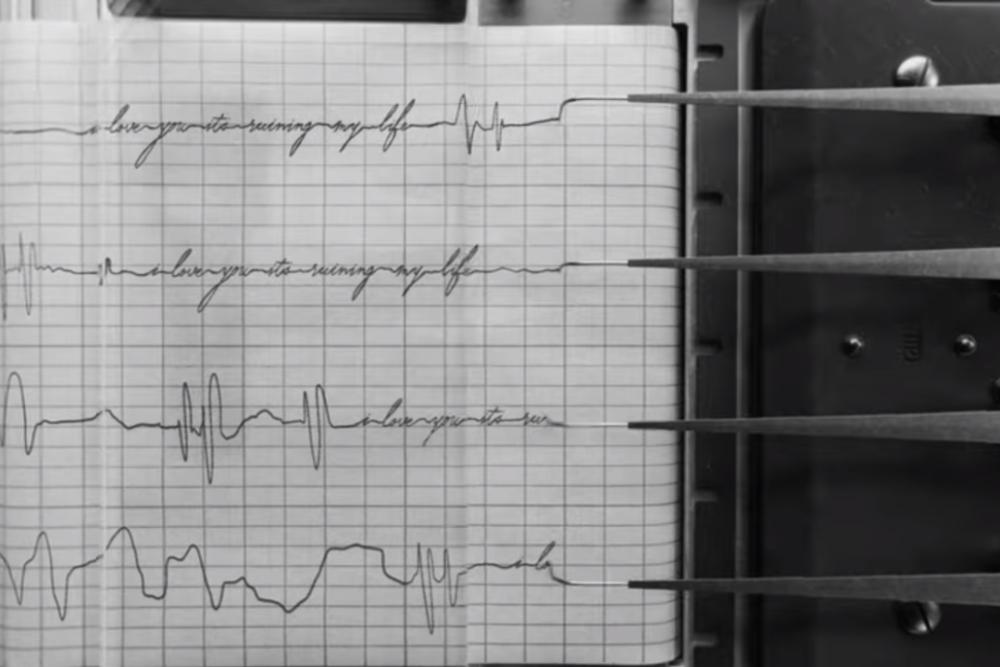 i love you its ruining my life
i love you its ruining my life
i love you its rui
i lo